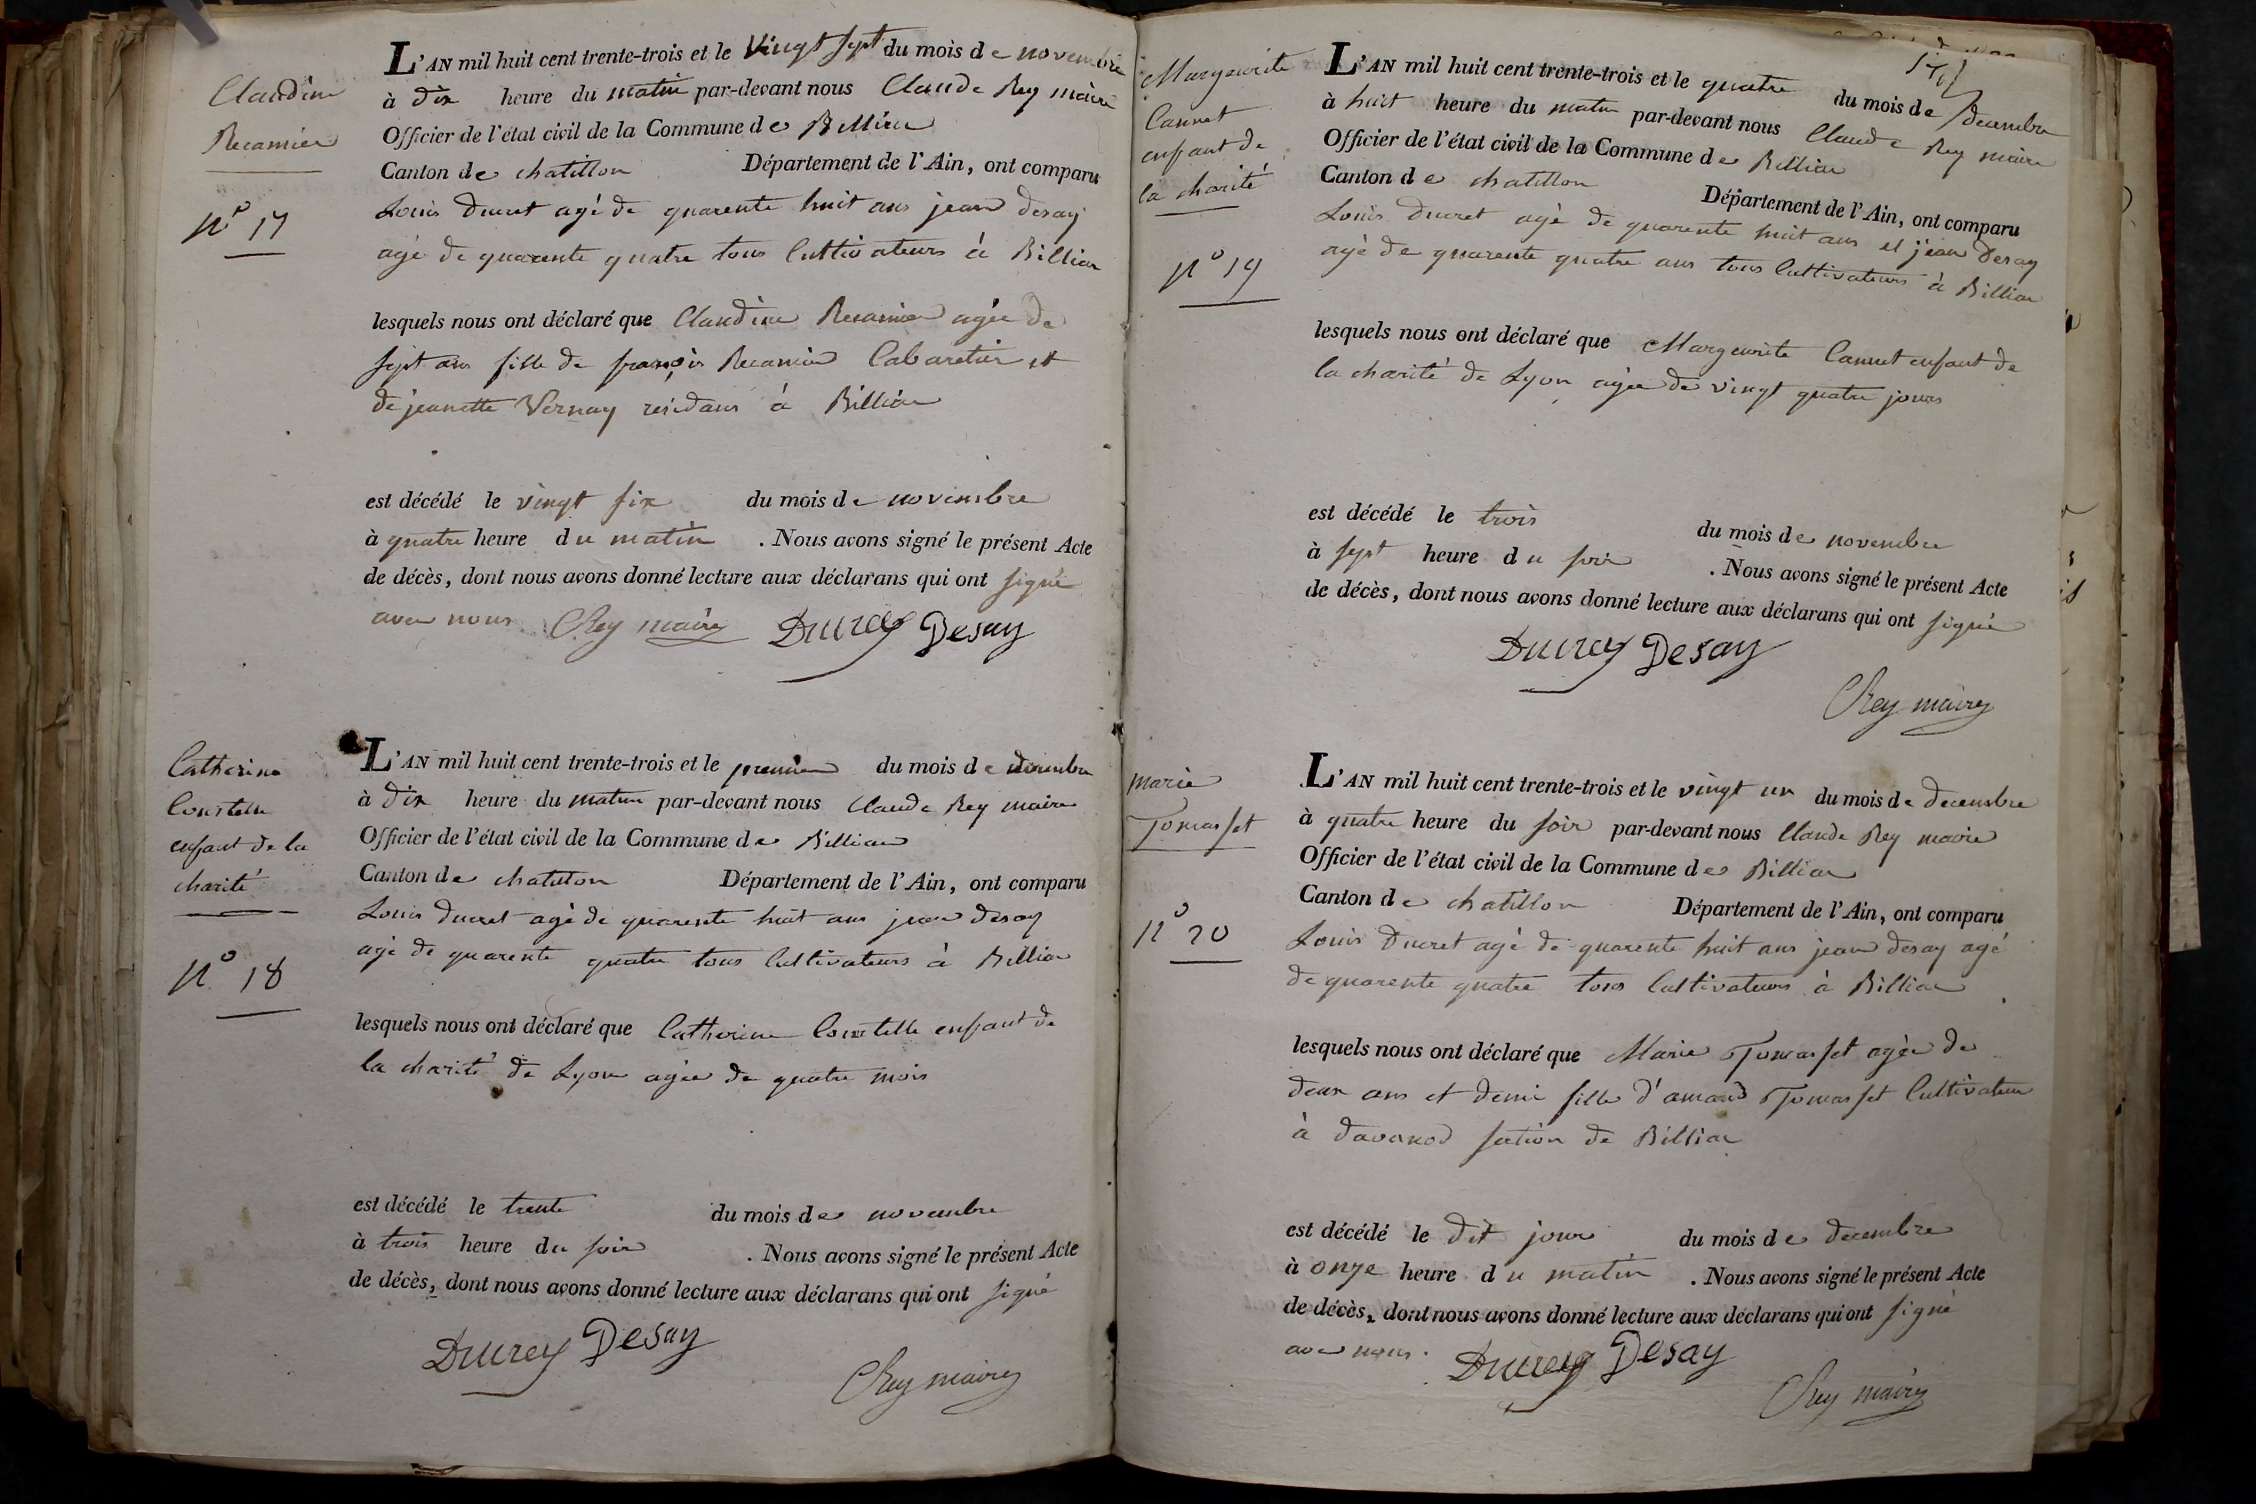 Claudine
Recamier
N° 17
L'AN mil huit cent trente-trois et le vingt sept du mois de novembre
à dix heure du matin par-devant nous Claude Rey maire
Officier de l'état civil de la Commune de Billiat
Canton de chatillon Département de l'Ain, ont comparu
Louis Ducret agé de quarente huit ans jean desay
agé de quarente quatre tous Cultivateurs à Billiat
lesquels nous ont déclaré que Claudine Recamier agée de
sept ans fille de françois Recamier Cabaretier et
de jeanette Vernay residans à Billiat
est décédé le vingt six du mois de novembre
à quatre heure du matin . Nous avons signé le présent Acte
de décès, dont nous avons donné lecture aux déclarans qui ont signé
avec nous CRey maire Ducret Desay
Catherine
Courtelle
enfant de la
charité
N° 18
L'AN mil huit cent trente-trois et le premier du mois de decembre
à dix heure du matin par-devant nous Claude Rey maire
Officier de l'état civil de la Commune de Billiat
Canton de chatillon Département de l'Ain, ont comparu
Louis Ducret agé de quarente huit ans jean desay
agé de quarente quatre tous Cultivateurs à Billiat
lesquels nous ont déclaré que Catherine Courtelle enfant de
la charité de Lyon agée de quatre mois
est décédé le trente du mois de novembre
à trois heure du soir . Nous avons signé le présent Acte
de décès, dont nous avons donné lecture aux déclarans qui ont signé
Ducret Desay
CRey maire
Margeurite
Cannet
enfant de
la charité
N° 19
L'AN mil huit cent trente-trois et le quatre du mois de decembre
à huit heure du matin par-devant nous Claude Rey maire
Officier de l'état civil de la Commune de Billiat
Canton de chatillon Département de l'Ain, ont comparu
Louis Ducret agé de quarente huit ans et jean desay
agé de quarente quatre ans tous Cultivateurs à Billiat
lesquels nous ont déclaré que Margeurite Cannet enfant de
la charité de Lyon agée de vingt quatre jours
est décédé le trois du mois de novembre
à sept heure du soir . Nous avons signé le présent Acte
de décès, dont nous avons donné lecture aux déclarans qui ont signé
Ducret Desay
CRey maire
marie
Tomasset
N° 20
L'AN mil huit cent trente-trois et le vingt un du mois de decembre
à quatre heure du soir par-devant nous Claude Rey maire
Officier de l'état civil de la Commune de Billiat
Canton de chatillon Département de l'Ain, ont comparu
Louis Ducret agé de quarente huit ans jean desay agé
de quarente quatre tous Cultivateurs à Billiat
lesquels nous ont déclaré que Marie Tomasset agée de
deux ans et demi fille d'amand Tomasset Cultivateur
à davanod section de Billiat
est décédé le dit jour du mois de decembre
à onze heure du matin . Nous avons signé le présent Acte
de décès, dont nous avons donné lecture aux déclarans qui ont signé
avec nous. Ducret Desay
CRey maire